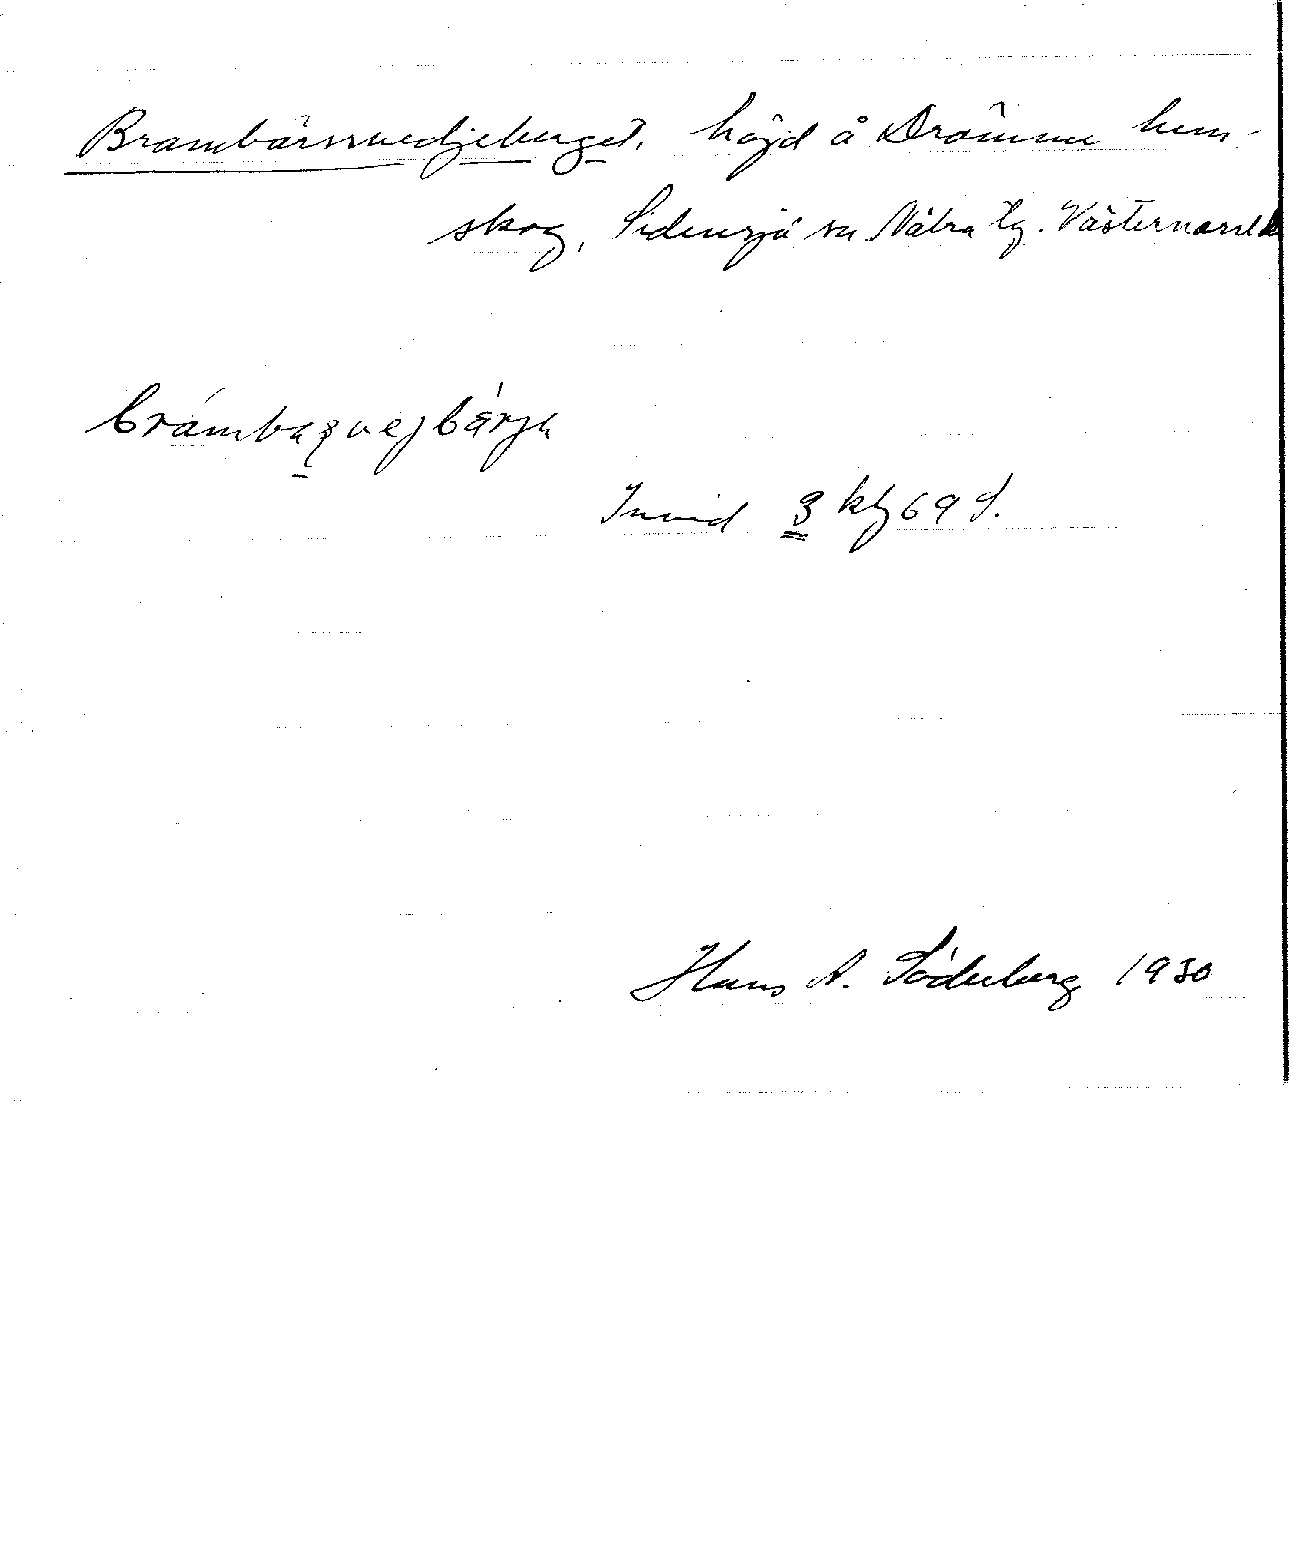 Brambärssvedjeberget, höjd å Drömme hem-
skog, Sidensjö sn Nätra tg. Västernorrl
Invid 3 kly 69 S.
Hans A. Söderberg 1930